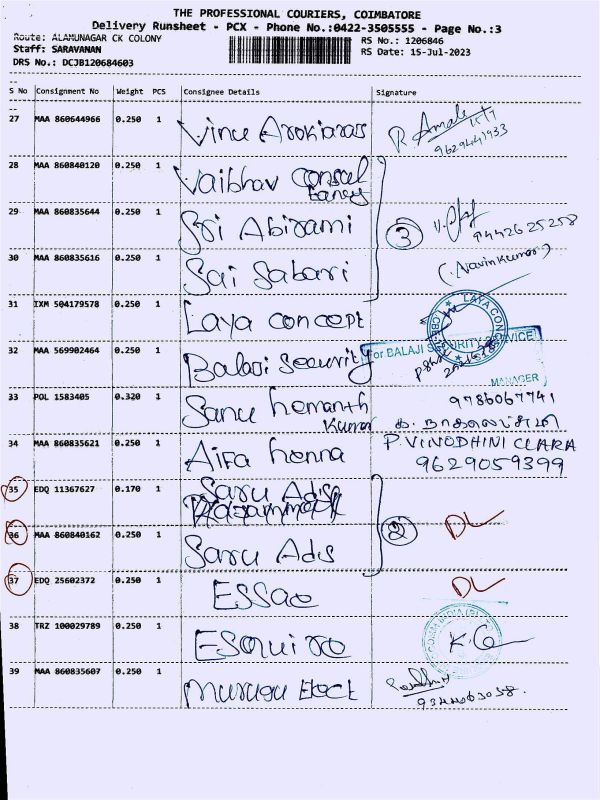 THE PROFESSIONAL COURIERS, COIMBATORE
Delivery Runsheet - PCX - Phone No.:0422-3505555 - Page No.:3
Route: ALAMUNAGAR CK COLONY
RS No.: 1206846
Staff: SARAVANAN
RS Date: 15-Jul-2023
DRS No.: DCJB120684603
S No Consignment No Weight PCS Consignee Details Signature
27 MAA 860644966 0.250 1 Vinu Arokiaras R. Amala
9629441933
28 MAA 860840120 0.250 1 Vaibhav Consul
Eancy
29 MAA 860835644 0.250 1 Sri Abirami 3 9442625258
30 MAA 860835616 0.250 1 Sai Sabari (Navinkumar)
31 IXM 504179578 0.250 1 Laya concept
32 MAA 569902464 0.250 1 Balaji Security For BALAJI SECURITY SERVICE
MANAGER
33 POL 1583405 0.320 1 Sanu hemanth 9786067741
Kumar
34 MAA 860835621 0.250 1 Aifa henna P. VINODHINI CLARA
9629059399
35 EDQ 11367627 0.170 1 Saru Adis
36 MAA 860840162 0.250 1 Saru Adis 2 DL
37 EDQ 25602372 0.250 1 ESSae DL
38 TRZ 100029789 0.250 1 Esquire
39 MAA 860835607 0.250 1 murugu Elect
9344063038